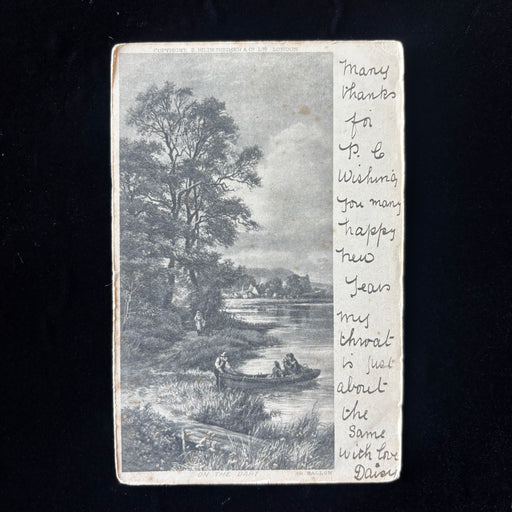 COPYRIGHT S. HILDESHEIMER & CO. LTD LONDON
Many
thanks
for
P. C
Wishing
you many
happy
new
years
my
throat
is just
about
the
same
with love
Daisy
ON THE DART